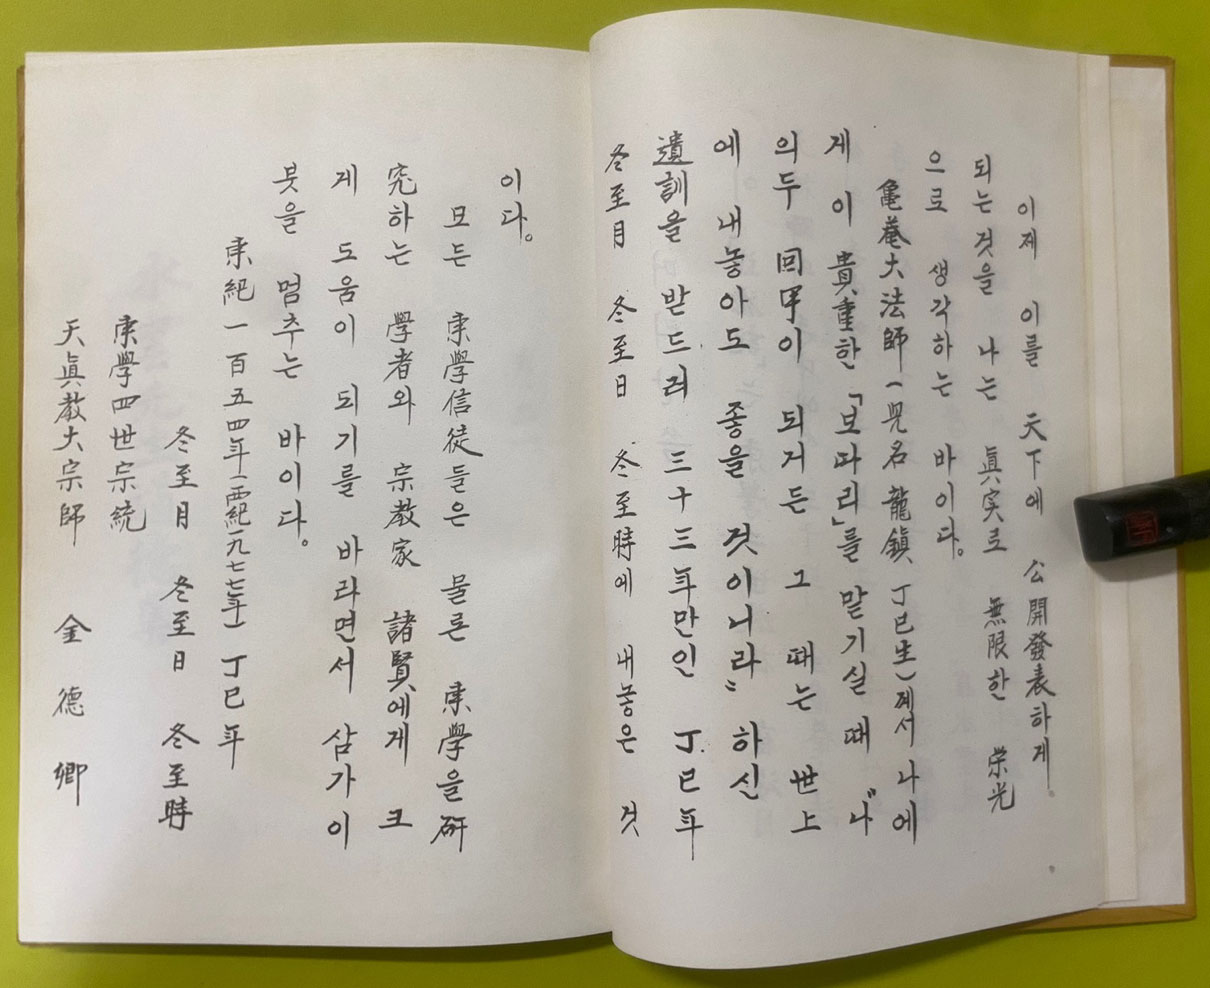 이제 이를 天下에 公開發表하게
되는것을 나는 眞実로 無限한 荣光
으로 생각하는 바이다。
龜菴大法師(兒名 龍鎭 丁巳生)께서 나에
게 이 貴重한「보따리」를 맡기실 때 "나
의두 回甲이 되거든 그 때는 世上
에 내놓아도 좋을 것이니라" 하신
遺訓을 받드러 三十三年만인 丁巳年
冬至月 冬至日 冬至時에 내놓은 것
이다。
모든 東學信徒들은 물론 東學을 硏
究하는 學者와 宗教家 諸賢에게 크
게 도움이 되기를 바라면서 삼가이
붓을 멈추는 바이다。
東紀一百五四年(西紀一九七七年) 丁巳年
冬至月 冬至日 冬至時
東學四世宗統
天眞教大宗師 金德卿